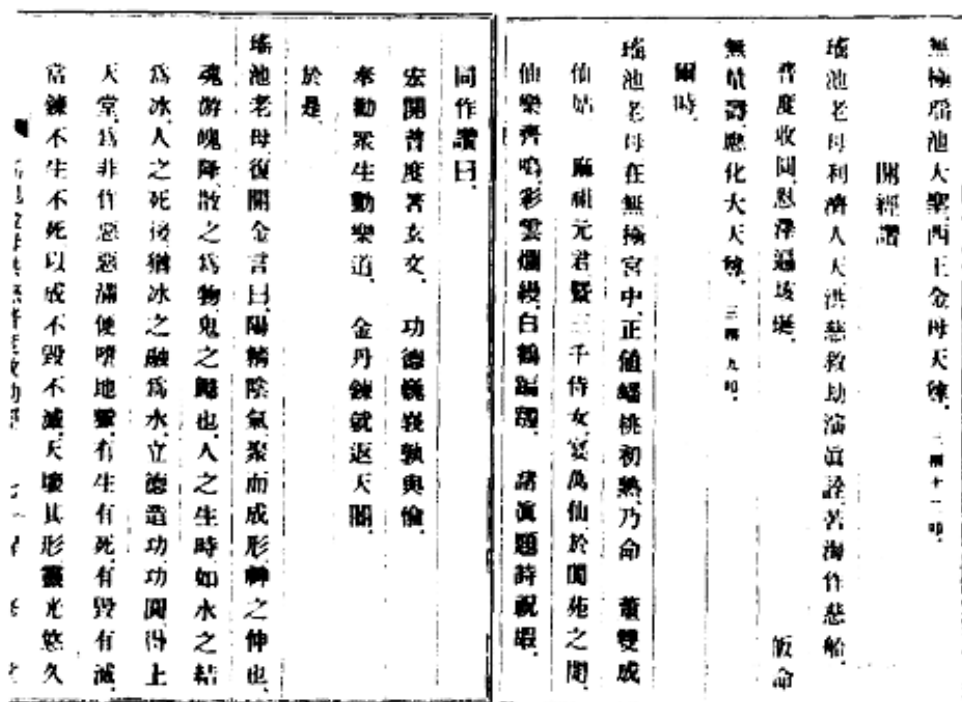 無極瑤池大聖西王金母天尊、三稱十二叩、
開經讚
瑤池老母利濟人天洪慈救劫演眞詮、苦海作慈船、
普度收圓、恩澤遍垓埏、 皈命
無量壽、應化大天尊、三稱九叩、
爾時、
瑤池老母在無極宮中、正値蟠桃初熟、乃命 董雙成
仙姑 麻祖元君曁三千侍女、宴萬仙於閬苑之間、
仙樂齊鳴、彩雲爛縵、白鶴蹁躚、 諸眞題詩祝嘏、
同作讚曰、
宏開普度著玄文、 功德巍峩孰與倫、
奉勸衆生勤樂道、 金丹鍊就返天閽、
於是、
瑤池老母復開金言曰、陽精陰氣、聚而成形、神之伸也、
魂游魄降、散之爲物、鬼之歸也、人之生時、如水之結
爲冰、人之死後、猶冰之融爲水、立德造功、功圓得上
天堂、爲非作惡、惡滿便墮地獄、有生有死、有毀有滅、
常鍊不生不死、以成不毀不滅、天壞其形、靈光悠久